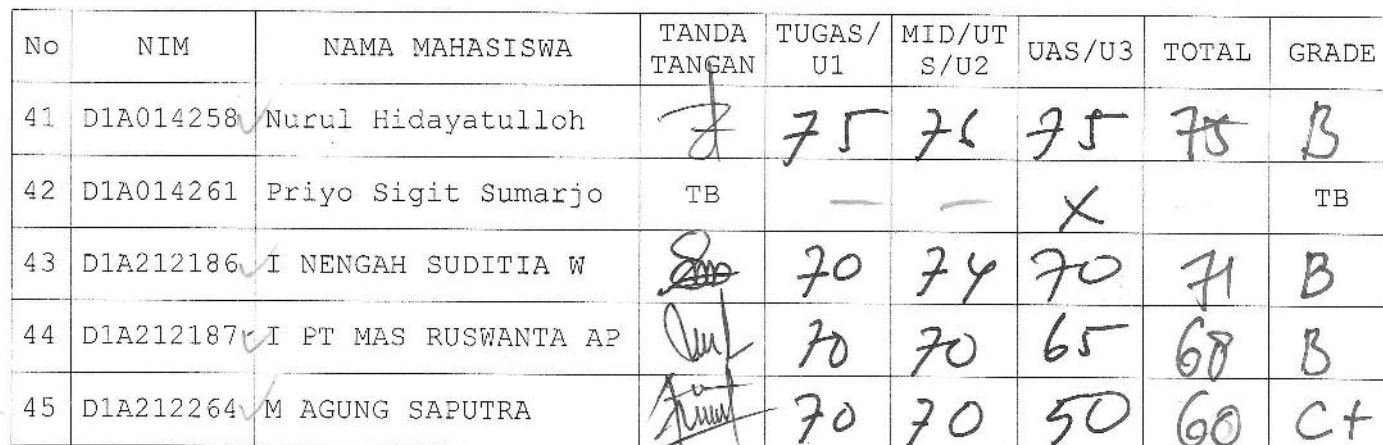 No NIM NAMA MAHASISWA TANDA TANGAN TUGAS/ U1 MID/UT S/U2 UAS/U3 TOTAL GRADE
41 D1A014258 Nurul Hidayatulloh 75 76 75 75 B
42 D1A014261 Priyo Sigit Sumarjo TB — — X TB
43 D1A212186 I NENGAH SUDITIA W 70 74 70 71 B
44 D1A212187 I PT MAS RUSWANTA AP 70 70 65 68 B
45 D1A212264 M AGUNG SAPUTRA 70 70 50 60 C+